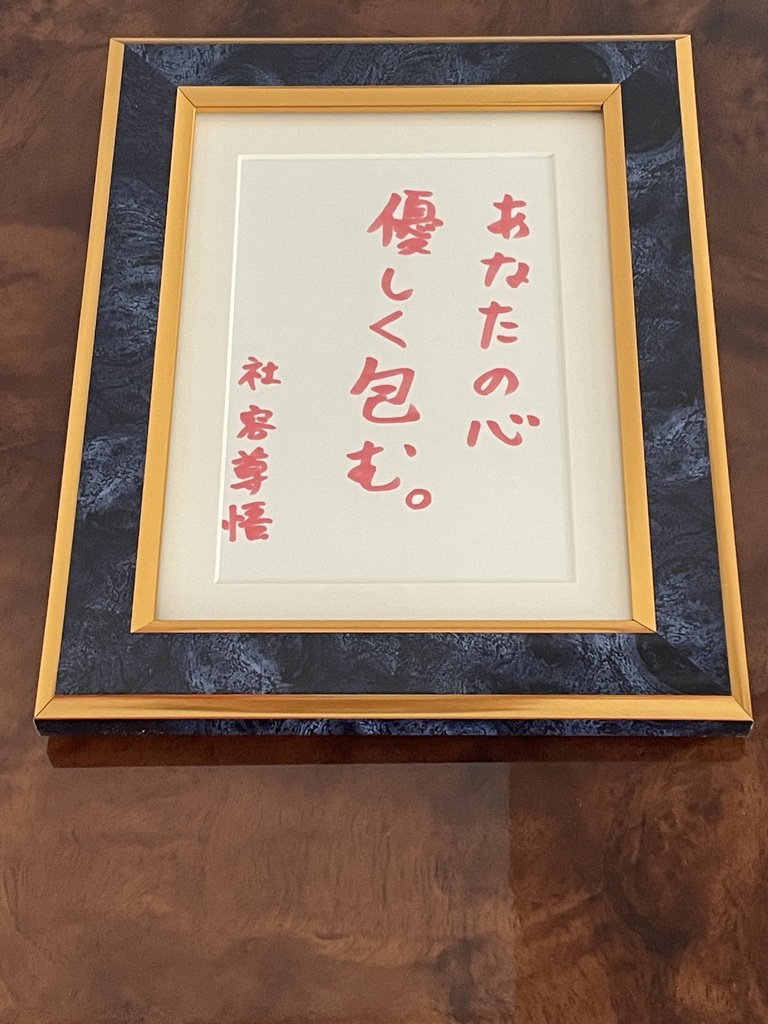 あなたの心
優しく包む。
社容尊悟